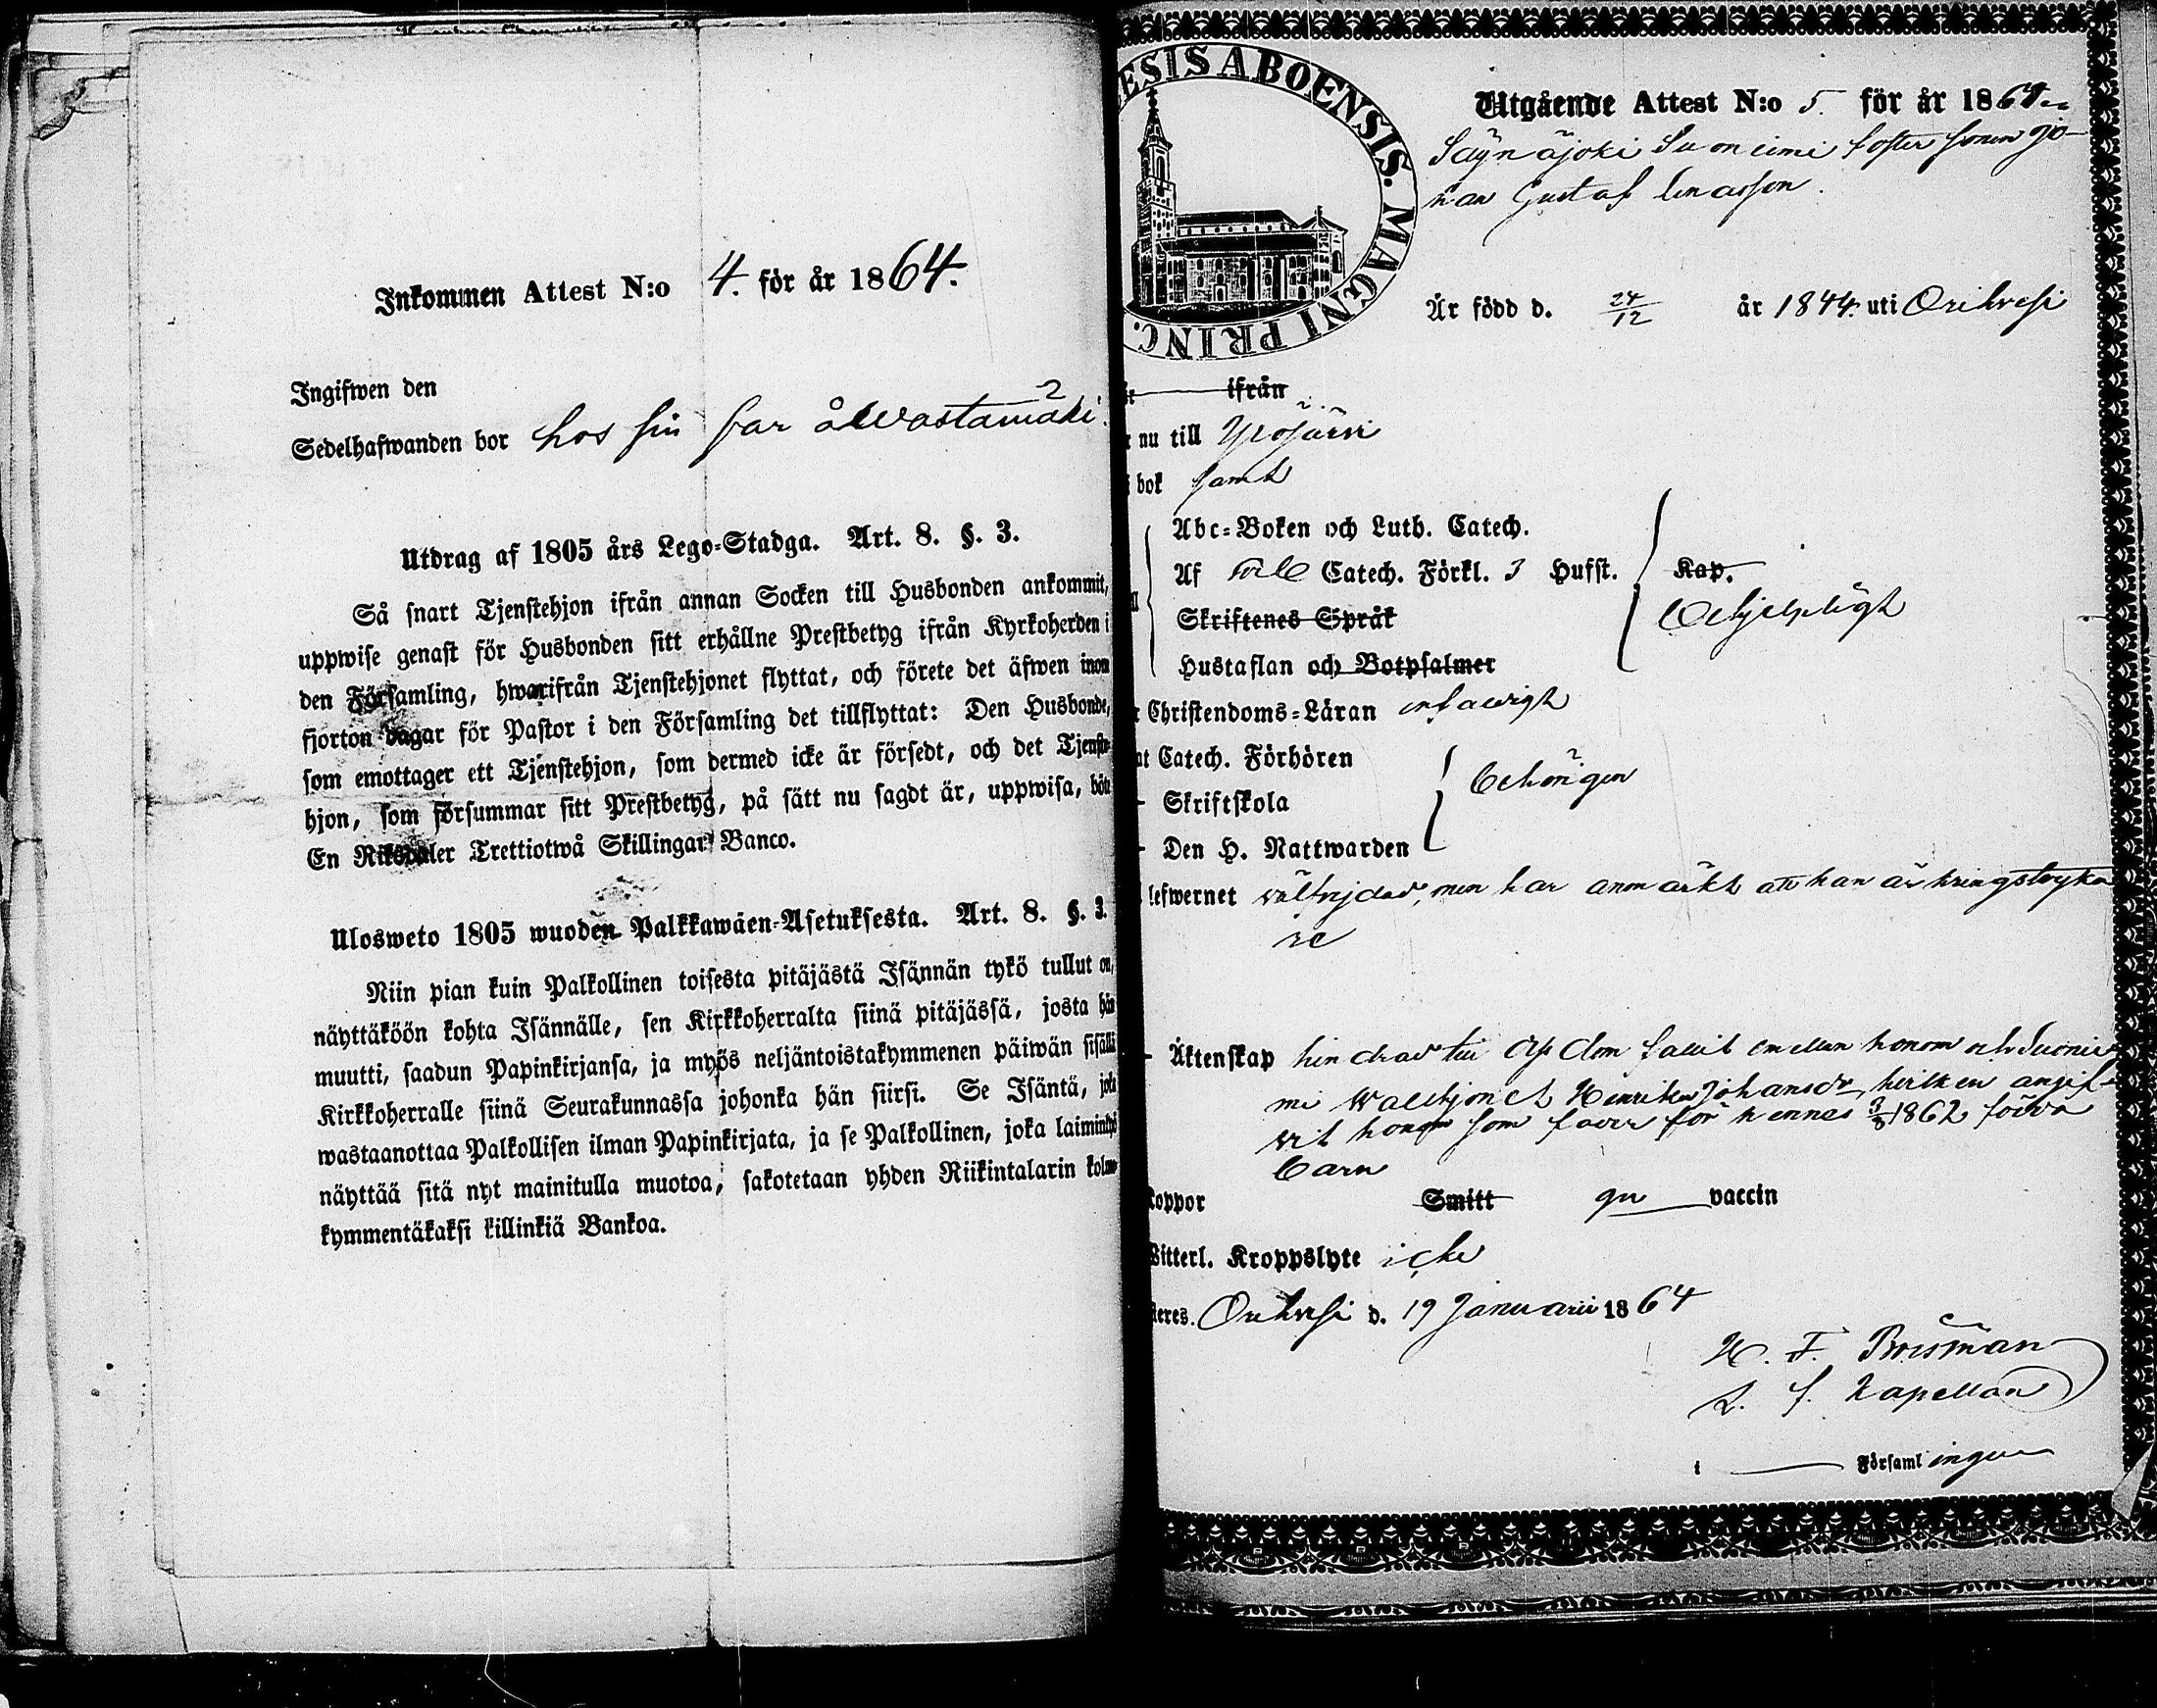 Inkommen Attest N:o 4. för år 1864.
Ingifwen den
Sedelhafwanden bor hos sin far å Wastamäki
Utdrag af 1805 års Lego-Stadga. Art. 8. §. 3.
Så snart Tjenstehjon ifrån annan Socken till Husbonden ankommit,
uppwise genast för Husbonden sitt erhållne Prestbetyg ifrån Kyrkoherden i
den Församling, hwarifrån Tjenstehjonet flyttat, och förete det äfwen inom
fjorton dagar för Pastor i den Församling det tillflyttat: Den Husbonde,
som emottager ett Tjenstehjon, som dermed icke är försedt, och det Tjenste-
hjon, som försummar sitt Prestbetyg, på sätt nu sagdt är, uppwisa, böte
En Riksdaler Trettiotwå Skillingar Banco.
Ulosweto 1805 wuoden Palkkawäen-Asetuksesta. Art. 8. §. 3.
Niin pian kuin Palkollinen toisesta pitäjästä Isännän tykö tullut on,
näyttäköön kohta Isännälle, sen Kirkkoherralta siinä pitäjässä, josta hän
muutti, saadun Papinkirjansa, ja myös neljäntoistakymmenen päiwän sisällä
Kirkkoherralle siinä Seurakunnassa johonka hän siirsi. Se Isäntä, joka
wastaanottaa Palkollisen ilman Papinkirjata, ja se Palkollinen, joka laiminlyö
näyttää sitä nyt mainitulla muotoa, sakotetaan yhden Riikintalarin kolme-
kymmentäkaksi killinkiä Bankoa.
ESIS ABOENSIS. MAGNI PRINC.
Utgående Attest N:o 5. för år 1864
Säynäjoki Suoniemi foster sonen Jo-
han Gustaf Enasson.
Är född d. 24/12 år 1844. uti Orihvesi
ifrån
nu till Ylöjärvi
bok samt
Abc-Boken och Luth. Catech.
Af Catech. Förkl. 3 Husst. Kap.
behjelpligt
Skriftenes Språk
Hustaflan och Botpsalmer
Christendoms-Läran enfaldigt
at Catech. Förhören
behörigen
Skriftskola
Den H. Nattwarden
lefwernet välfrejdad, men har anmärkt att han är kringstryka
re
Äktenskap hindrad till dess dom fallit emellan honom och Suonie
mi Wallhjonet Henrika Johansdr, hvilken angif-
vit honom som fader för hennes 3/8 1862 födda
barn
koppor Smitt gn vaccin
Witterl. Kroppslyte icke
teres. Orihvesi d. 19 Januarii 1864
K. F. Boisman
L. f. Kapellan
i Församlingen